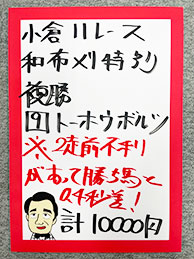 小倉11レース
和布刈特別
複勝
9 トーホウボルツ
※2走前不利
がなって勝ち馬と
0.4秒差!
計10000円